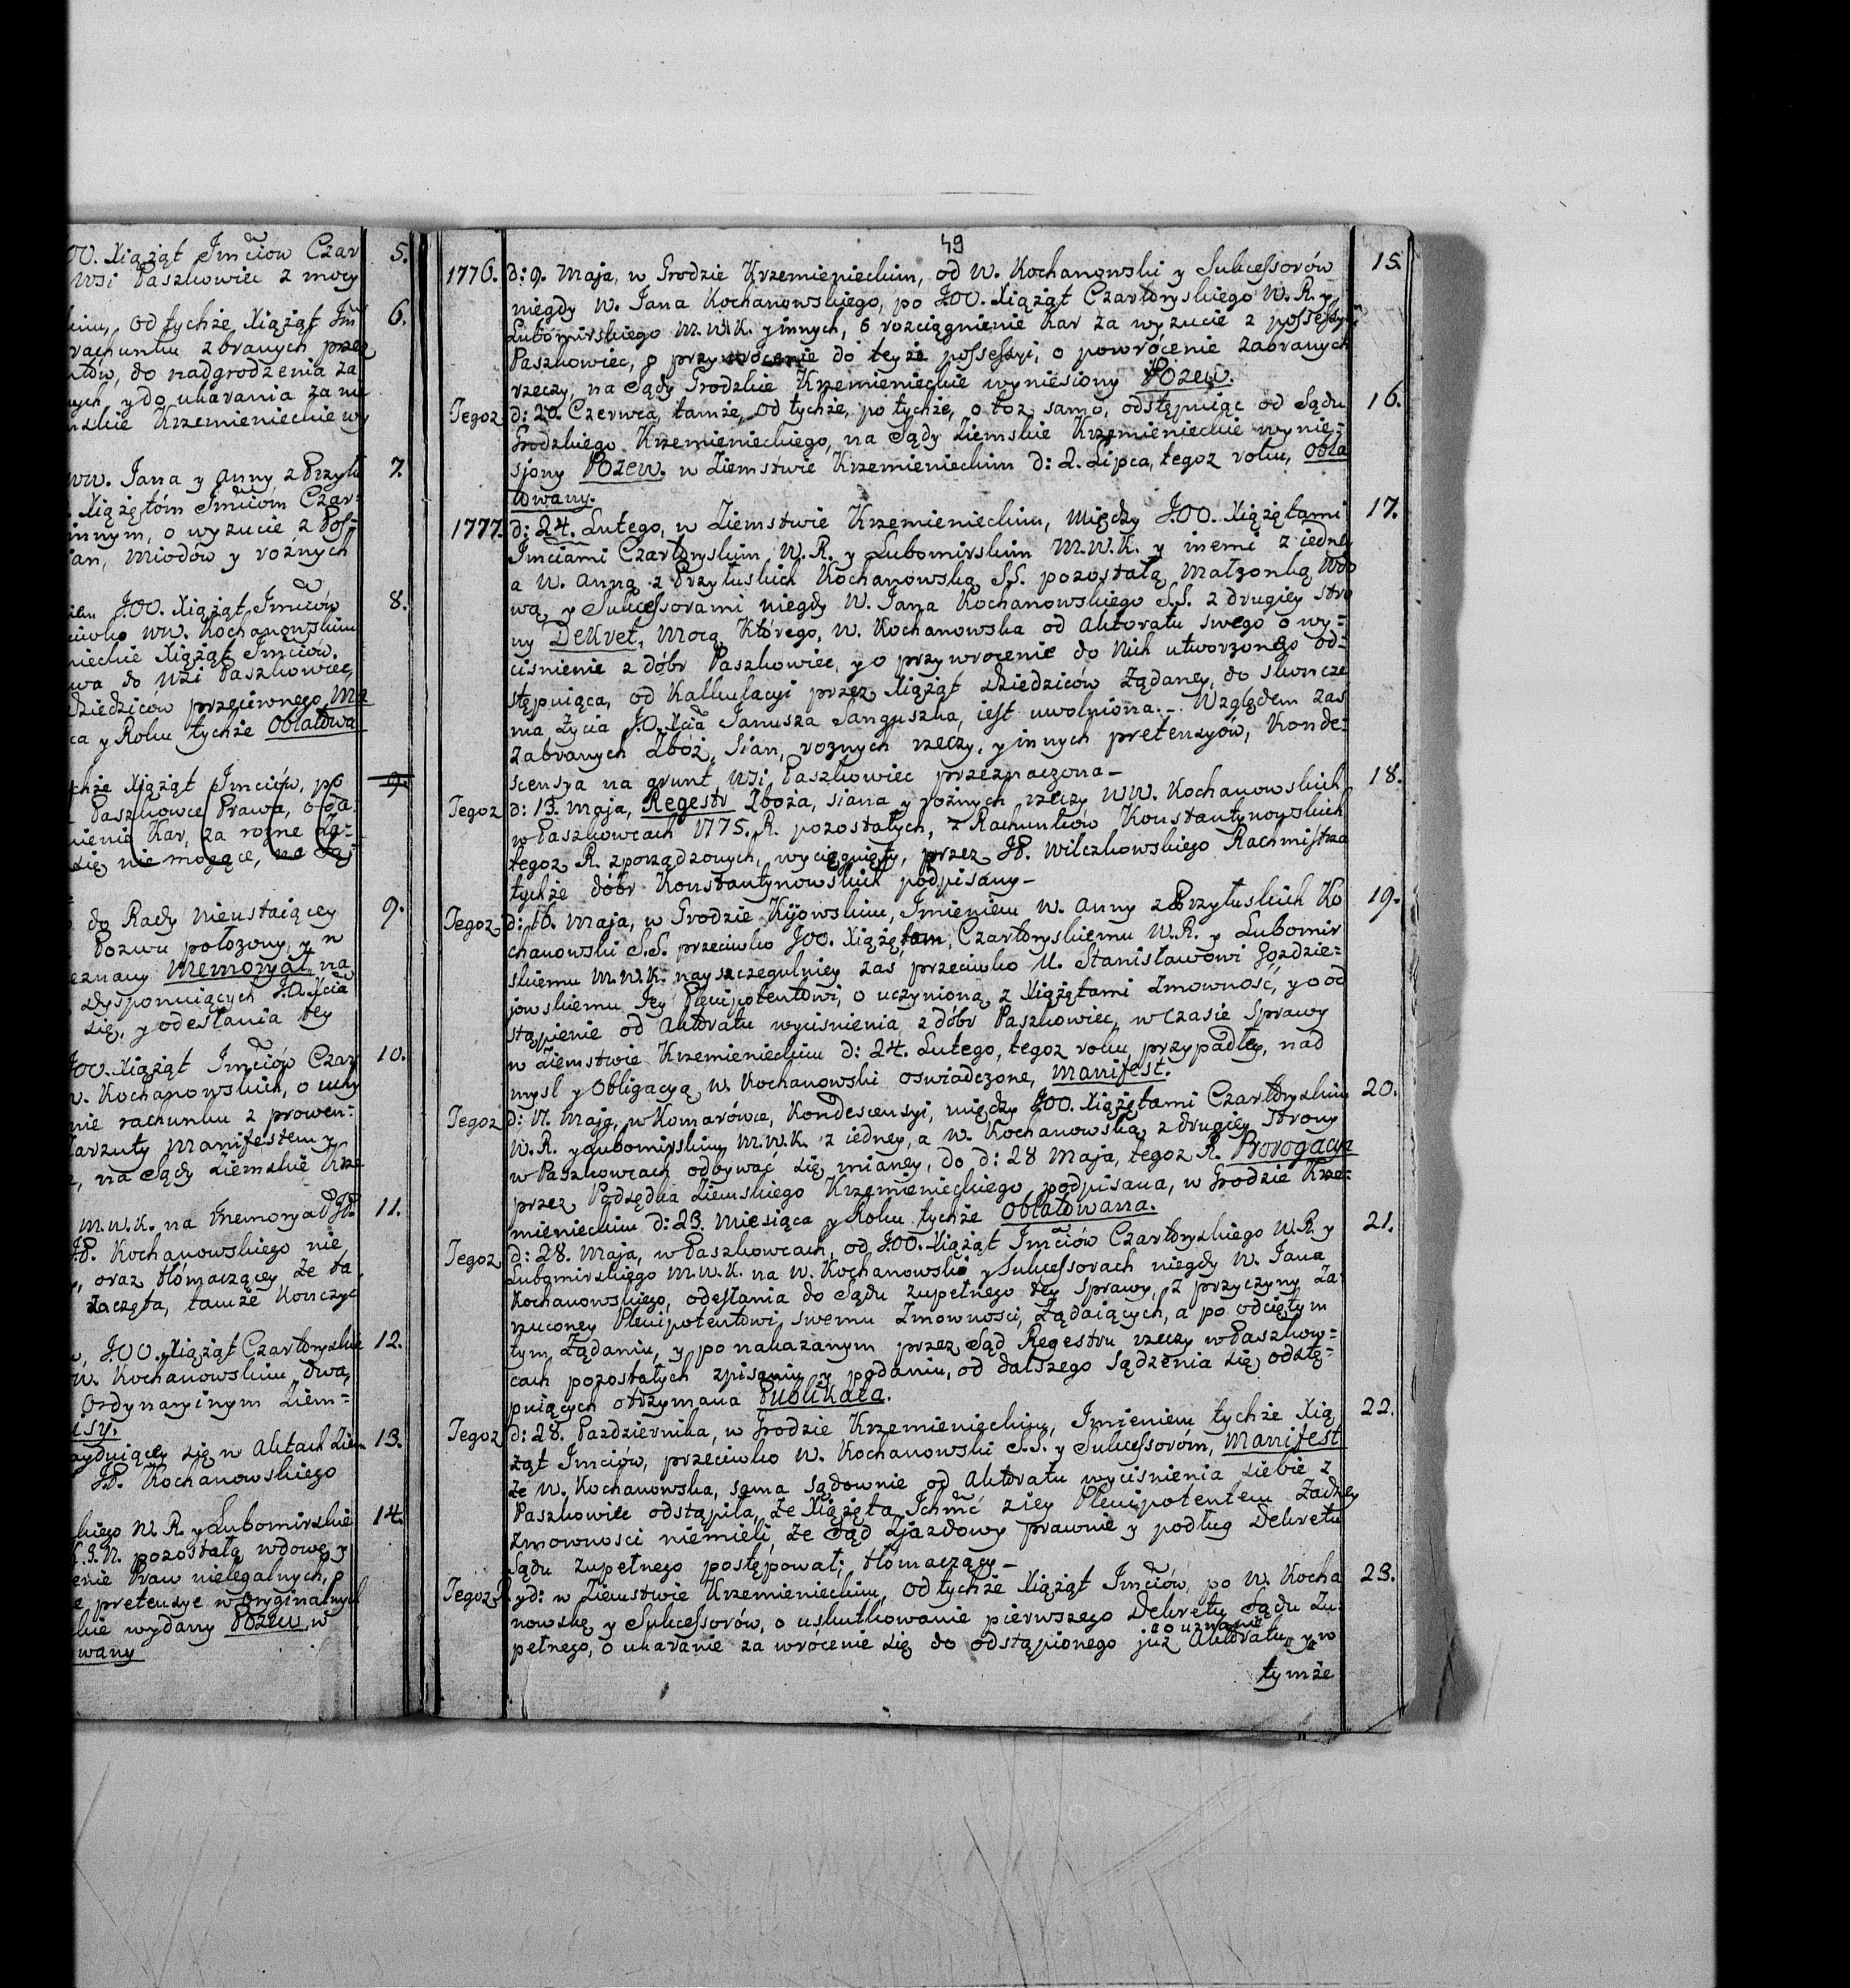 OO. Xiążąt Jmciow Czar 5.
wsi Paszkowiec z mocy
od tychże Xiążąt Jm 6.
rachunku zbranych przez
do nadgrodzenia za
ych y do ukarania za nie
skie Krzemienieckie wy
WW. Jana y Anny z Przyłu 7.
Xiążętóm Jmciom Czar-
innym, o wyzucie z Pos-
Miodów y rożnych
JOO. Xiążąt Jmciów 8.
WW. Kochanowskim
nieckie Xiążąt Jmciow.
wa do wsi Paszkowiec,
dziedziców przeciwnego Ma
ca y Roku tychże Oblatowa
chże Xiążąt Jmciów, po 9.
Paszkowce Prawa, o od
nienie Kar, za rożne
się nie mogące, na Są
do Rady Nieustaiącey 9.
Pozwu położony, y w
eznany Memoryał na
dysponuiących J.O. Xcia
się, y odesłania tey
JOO. Xiążąt Jmciów Czar 10.
W. Kochanowskich, o uczy
nie rachunku z prowen:
zarzuty Manifestem y
na Sądy Ziemskie Krze
M.W.K. na Memoryał JP. 11.
JP. Kochanowskiego nie
oraz tłómaczącey, że ta
zaczęta, tamże kończyć
JOO. Xiążąt Czartoryskie 12.
W. Kochanowskim dwa,
Ordynaryinym Ziem=
isy.
ayduiący się w Aktach Ziem 13.
JP. Kochanowskiego
kiego W.R. y Lubomirskie 14.
pozostałą wdowę y
enie Praw nielegalnych, o
e pretensye w Oryginalnych
kie wydany Pozew, w
wany
49
1776. d: 9. Maja, w Grodzie Krzemienieckim, od W. Kochanowski y Sukcessorów 15.
niegdy W. Jana Kochanowskiego, po JOO. Xiążąt Czartoryskiego W.R. y
Lubomirskiego M.W.K. y innych, o rozciągnienie Kar za wyzucie z possessyi
Paszkowiec, o przywrócenie do teyże possessyi, o powrócenie zabranych
rzeczy, na Sądy Grodzkie Krzemienieckie wyniesiony Pozew.
Tegoż d: 20 Czerwca, tamże, od tychże, po tychże, o toż samo, odstępuiąc od Sądu 16.
Grodzkiego Krzemienieckiego, na Sądy Ziemskie Krzemienieckie wynie=
siony Pozew. w Ziemstwie Krzemienieckim d: 2. Lipca, tegoż roku, Obla
towany.
1777. d: 24. Lutego, w Ziemstwie Krzemienieckim, między J.OO. Xiążętami 17.
Jmciami Czartoryskim W.R. y Lubomirskim M.W.K. y inemi z iedney
a W. Anną z Przyłuskich Kochanowską S.S. pozostałą Małżonką Wdo
wą, y Sukcessorami niegdy W. Jana Kochanowskiego S.S. z drugiey stro
ny Dekret, mocą którego, W. Kochanowska od Aktoratu swego o wy=
ciśnienie z dóbr Paszkowiec, y o przywrocenie do nich utworzonego od=
stępuiąca, od Kalkulacyi przez Xiążąt Dziedziców żądaney, do skończe
nia życia J.O. Xcia Janusza Sanguszka, iest uwolniona.- Względem zaś
zabranych Zbóż, Sian, rożnych rzeczy, y innych pretensyów, Konde=
scensya na grunt wsi Paszkowiec przeznaczona-
Tegoż d: 13. Maja, Regestr Zboża, siana y rożnych rzeczy WW. Kochanowskich 18.
w Paszkowcach 1775. R. pozostałych, z Rachunków Konstantynowskich
tegoż R. zporządzonych, wyciągnięty, przez JP. Wilczkowskiego Rachmistrza
tychże dóbr Konstantynowskich podpisany-
Tegoż d: 16. Maja, w Grodzie Kijowskim, Jmieniem W. Anny z Przyłuskich Ko 19.
chanowski S.S. przeciwko JOO. Xiążętom, Czartoryskiemu W.R. y Lubomir
skiemu M.W.K. nayszczegulniey zaś przeciwko U. Stanisławowi Gozdzie=
jowskiemu Jey Plenipotentowi, o uczynioną z Xiążętami Zmowność, y o od
stąpienie od Aktoratu wyciśnienia z dóbr Paszkowiec, w czasie Sprawy
w Ziemstwie Krzemienieckim d: 24. Lutego, tegoż roku, przypadłey, nad
mysl y Obligacyą W. Kochanowski oswiadczone, Manifest.
Tegoż d: 17. Maja, w Komarówce, Kondescensyi, między JOO. Xiążętami Czartoryskim 20.
W.R. y Lubomirskim M.W.K. z iedney, a W. Kochanowską z drugiey strony
w Paszkowcach odbywać się mianey, do d: 28 Maja, tegoż R. Prorogacya
przez Podsędka Ziemskiego Krzemienieckiego podpisana, w Grodzie Krze=
mienieckim d: 23. Miesiąca y Roku tychże Oblatowana.
Tegoż d: 28. Maja, w Paszkowcach, od JOO. Xiążąt Jmciów Czartoryskiego W.R. y 21.
Lubomirskiego M.W.K. na W. Kochanowski y Sukcessorach niegdy W. Jana
Kochanowskiego, odesłania do Sądu zupełnego tey Sprawy, z przyczyny Za
rzuconey Plenipotentowi swemu Zmowności, żądaiących, a po odciętym
tym Żądaniu, y po nakazanym przez Sąd Regestru rzeczy w Paszkow=
cach pozostałych zpisaniu y podaniu, od dalszego Sądzenia się odstę=
puiących otrzymana Publikata.
Tegoż d: 28. Pazdziernika, w Grodzie Krzemienieckim, Jmieniem tychże Xią 22.
żąt Jmciów, przeciwko W. Kochanowski S.S. y Sukcessoróm, Manifest
że W. Kochanowska, sama sądownie od Aktoratu wyciśnienia siebie z
Paszkowiec odstąpiła, że Xiążęta Ichmć z iey Plenipotentem żadney
zmowności niemieli, że Sąd Zjazdowy prawnie y podług Dekretu
Sądu zupełnego postępował; tłómaczący-
Tegoż y d: w Ziemstwie Krzemienieckim, od tychże Xiążąt Jmciów, po W. Kocha 23.
nowskę y Sukcessorów, o uskutkowanie pierwszego Dekretu Sądu Zu
pełnego, o ukaranie za wrocenie się do odstąpionego już Aktoratu, y w
o uznanie
tymże